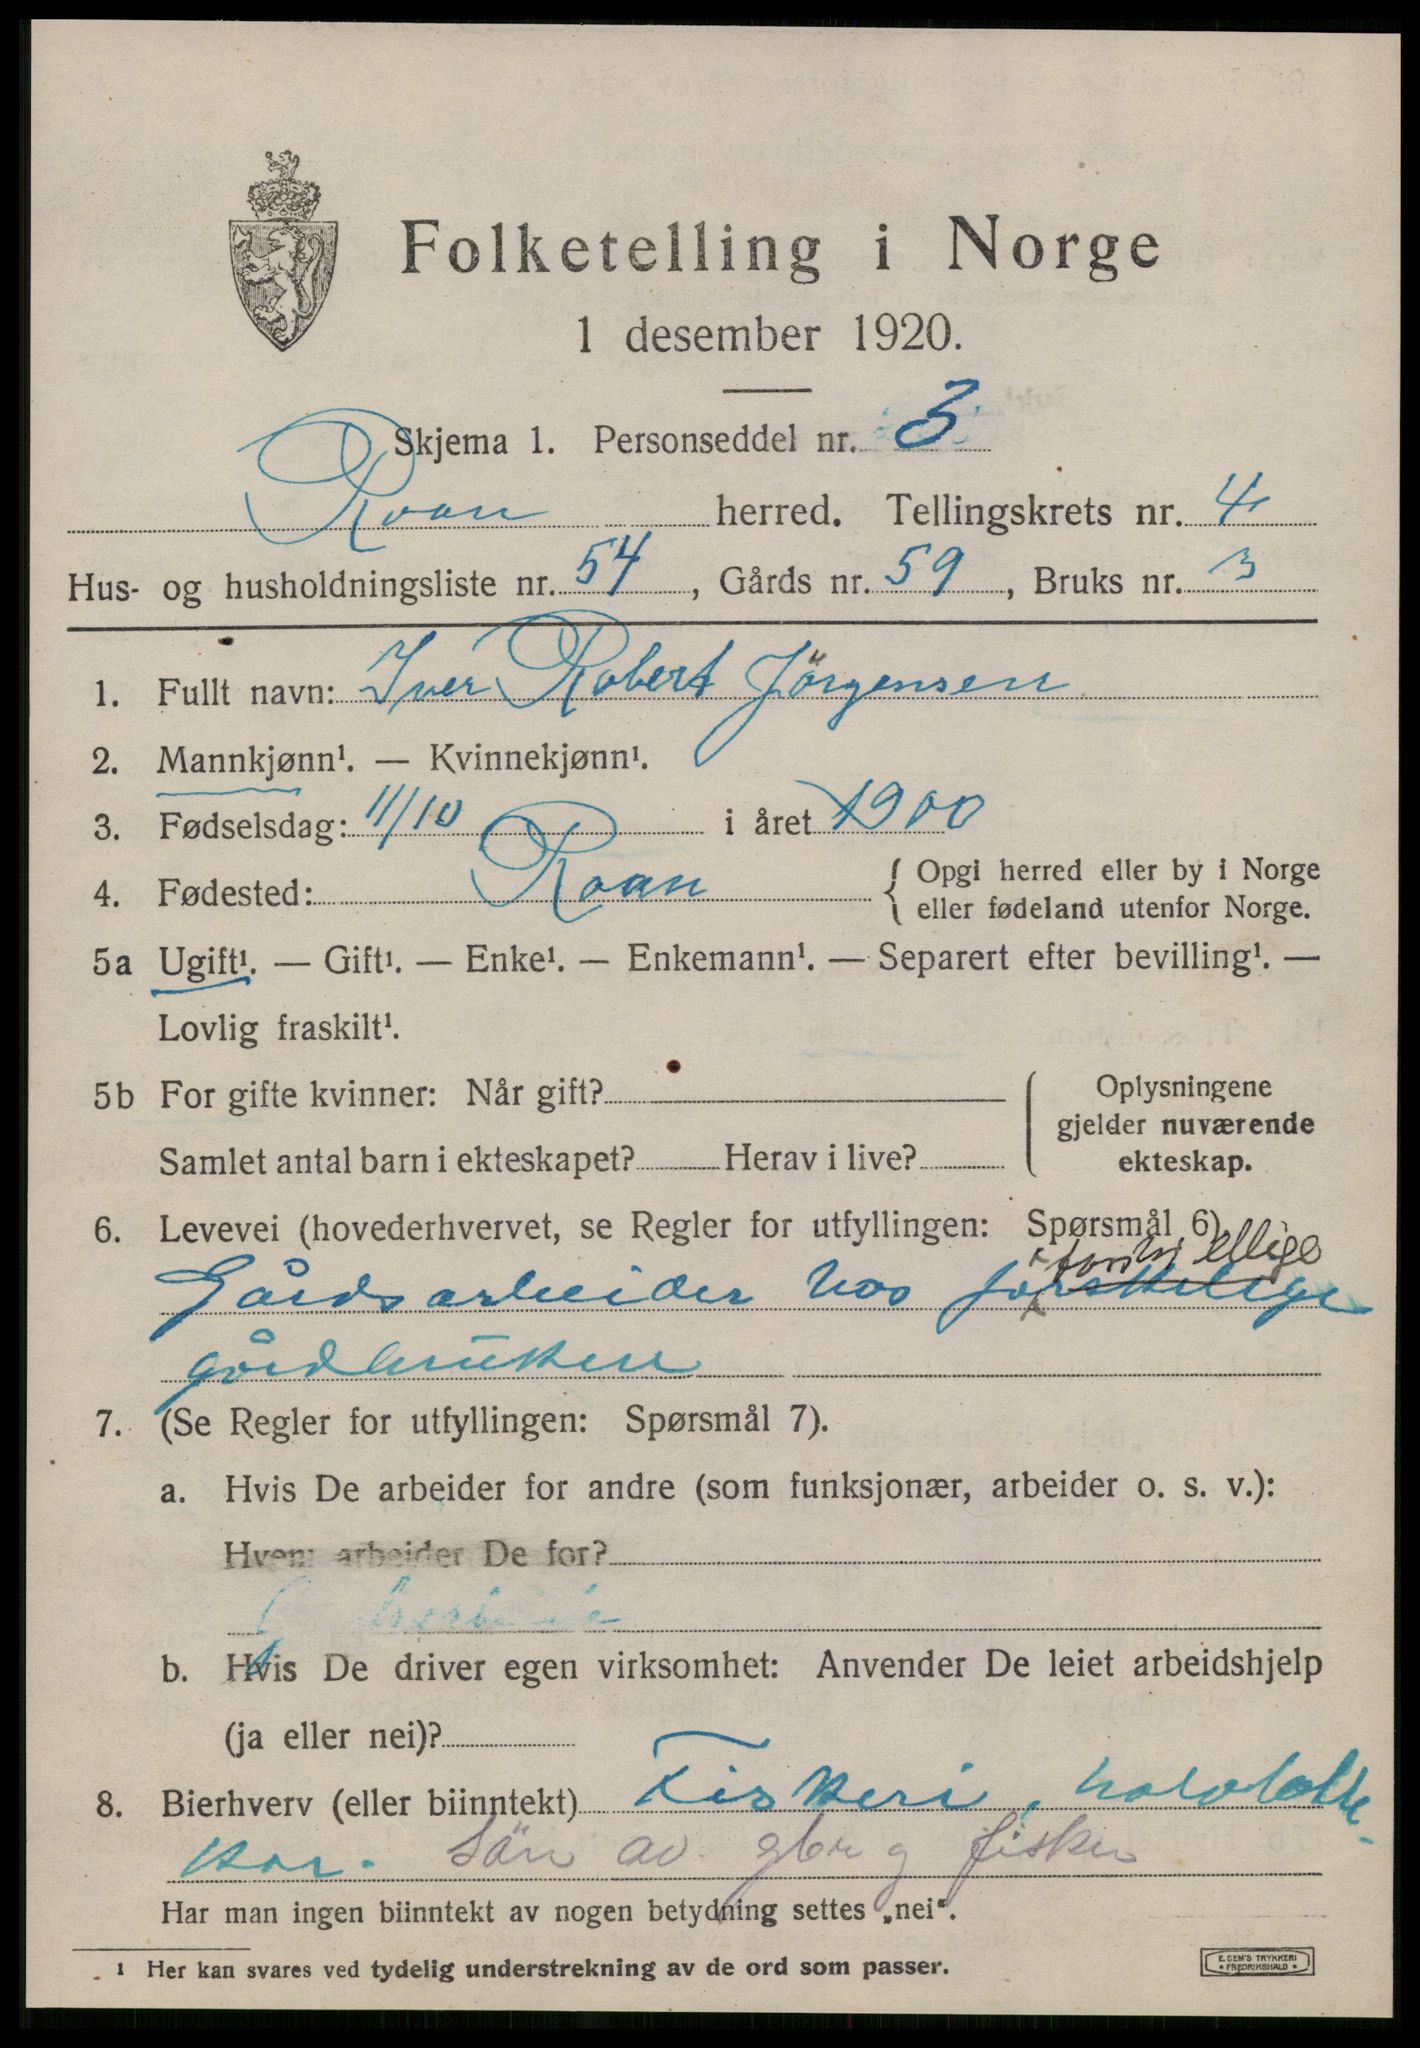 Folketelling i Norge
1 desember 1920.
Skjema 1. Personseddel nr. 3
Roan herred. Tellingskrets nr. 4
Hus- og husholdningsliste nr. 54, Gårds nr. 59, Bruks nr. 3
1. Fullt navn: Iver Robert Jörgensen
2. Mannkjønn¹. — Kvinnekjønn¹.
3. Fødselsdag: 11/10 i året 1900
4. Fødested: Roan { Opgi herred eller by i Norge
eller fødeland utenfor Norge.
5a Ugift¹. — Gift¹. — Enke¹. — Enkemann¹. — Separert efter bevilling¹. —
Lovlig fraskilt¹.
5b For gifte kvinner: Når gift? { Oplysningene
gjelder nuværende
ekteskap.
Samlet antal barn i ekteskapet? Herav i live?
6. Levevei (hovederhvervet, se Regler for utfyllingen: Spørsmål 6)
forskjellige
Gårdsarbeider hos forskelige
gårdbrukere
7. (Se Regler for utfyllingen: Spørsmål 7).
a. Hvis De arbeider for andre (som funksjonær, arbeider o. s. v.):
Hvem arbeider De for?
b. Hvis De driver egen virksomhet: Anvender De leiet arbeidshjelp
(ja eller nei)?
8. Bierhverv (eller biinntekt) Fiskeri,
kar. Sön av gbr og fisker
Har man ingen biinntekt av nogen betydning settes „nei“.
¹ Her kan svares ved tydelig understrekning av de ord som passer.
E. SEM'S TRYKKERI
• FREDRIKSHALD •